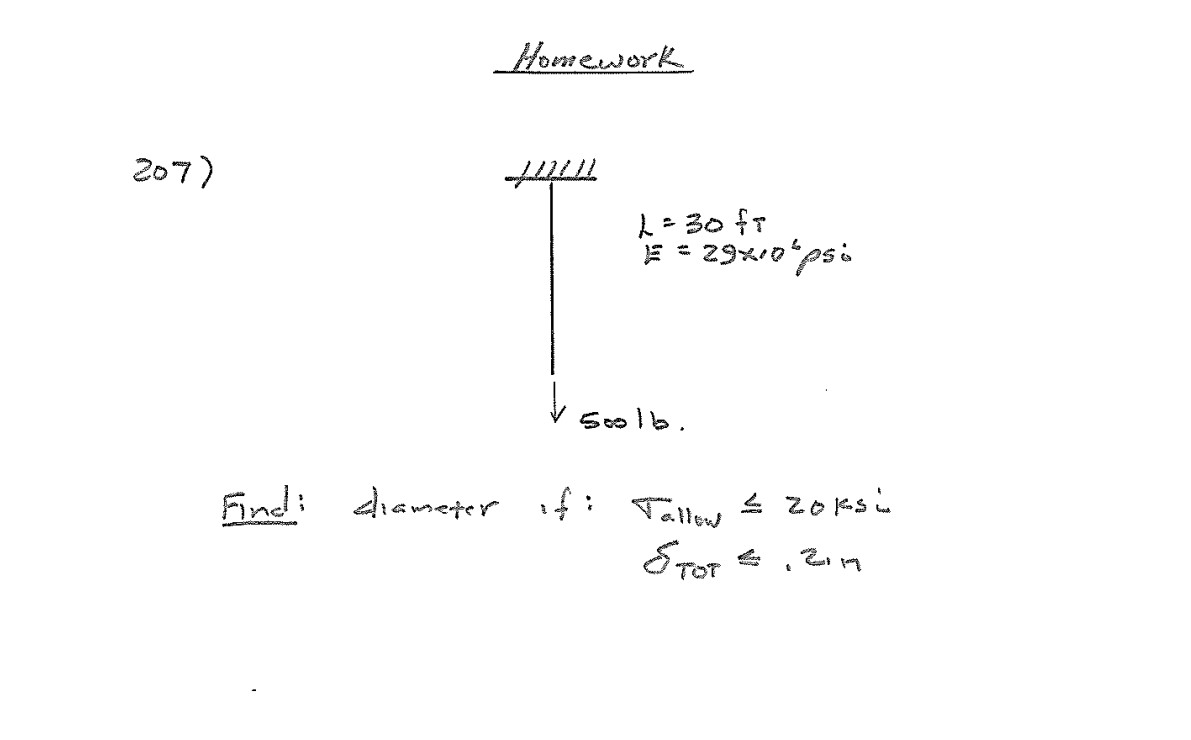 Homework
207)
L = 30 ft
E = 29x10⁶ psi
500 lb.
Find: diameter if: σallow ≤ 20 ksi
δTOT ≤ .2in